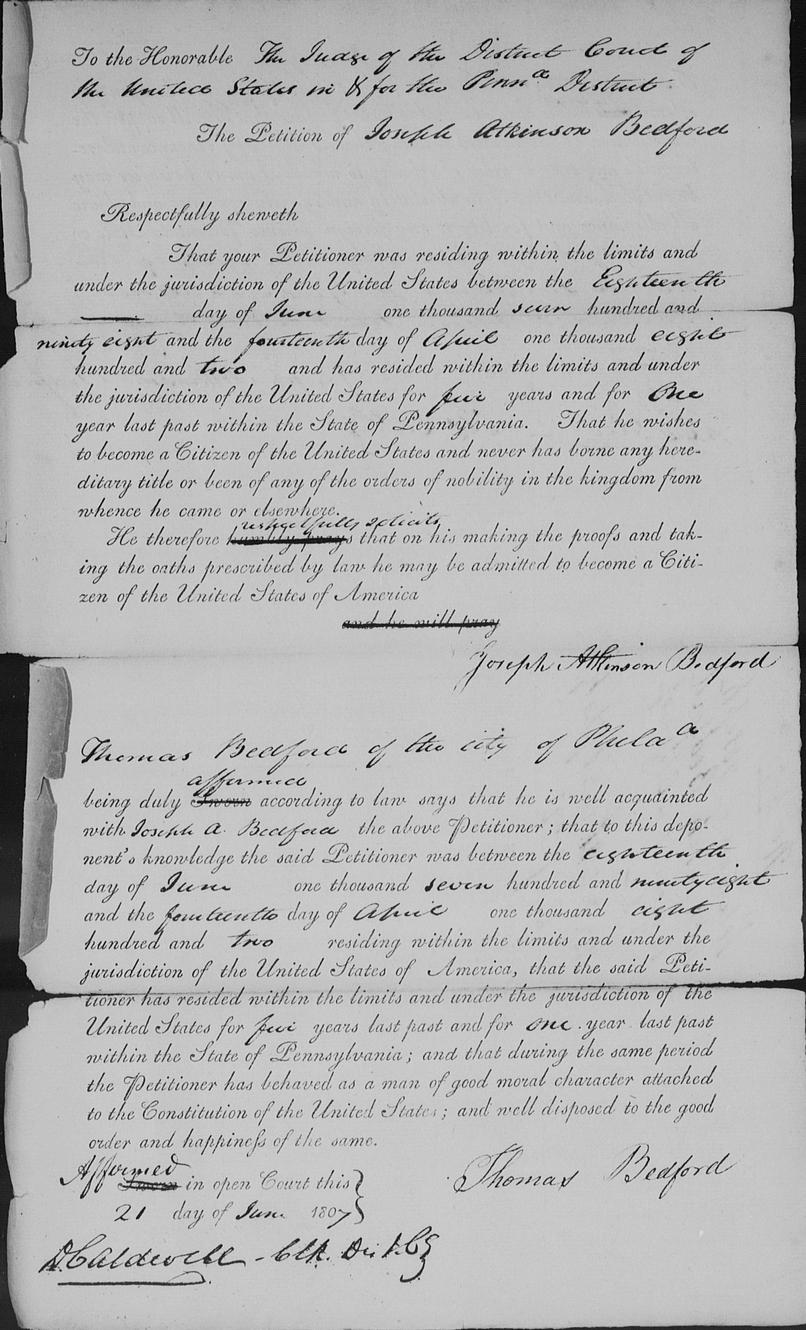 To the Honorable The Judge of the District Court of
the United States in & for the Pennª District
The Petition of Joseph Atkinson Bedford
Respectfully sheweth
That your Petitioner was residing within the limits and
under the jurisdiction of the United States between the Eighteenth
day of June one thousand seven hundred and
ninety eight and the fourteenth day of April one thousand eight
hundred and two and has resided within the limits and under
the jurisdiction of the United States for five years and for One
year last past within the State of Pennsylvania. That he wishes
to become a Citizen of the United States and never has borne any here-
ditary title or been of any of the orders of nobility in the kingdom from
whence he came or elsewhere.
respectfully solicits
He therefore humbly prays that on his making the proofs and tak-
ing the oaths prescribed by law he may be admitted to become a Citi-
zen of the United States of America
and he will pray
Joseph Atkinson Bedford
Thomas Bedford of the city of Philaª
affirmed
being duly Sworn according to law says that he is well acquainted
with Joseph A. Bedford the above Petitioner; that to this depo-
nent's knowledge the said Petitioner was between the eighteenth
day of June one thousand seven hundred and ninety eight
and the fourteenth day of April one thousand eight
hundred and two residing within the limits and under the
jurisdiction of the United States of America, that the said Peti-
tioner has resided within the limits and under the jurisdiction of the
United States for five years last past and for one year last past
within the State of Pennsylvania; and that during the same period
the Petitioner has behaved as a man of good moral character attached
to the Constitution of the United States; and well disposed to the good
order and happineſs of the same.
Affirmed
Sworn in open Court this
21 day of June 1807
Thomas Bedford
D Caldwell - Clk. Dist. Ct